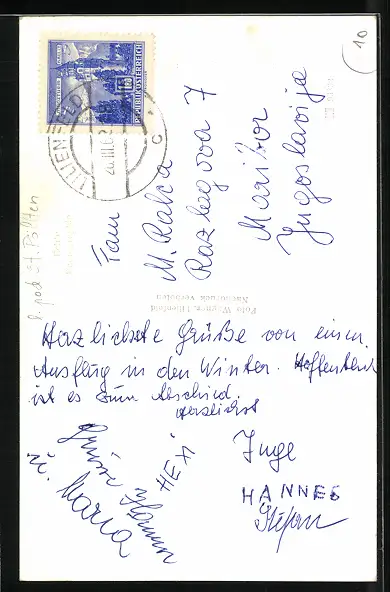 (10
REPUBLIK ÖSTERREICH
LILIENFELD
Fam
M. Raka
Razlagova 7
Maribor
Jugoslavija
St. Pölten
Foto Wagner, Lilienfeld
Nachdruck verboten
Herzlichste Grüße von einem
Ausflug in den Winter. Hoffentlich
ist es zum Abschied.
Herzlichst
Inge
HANNES
Stefan
"HEXI"
Grüsse
u. Maria